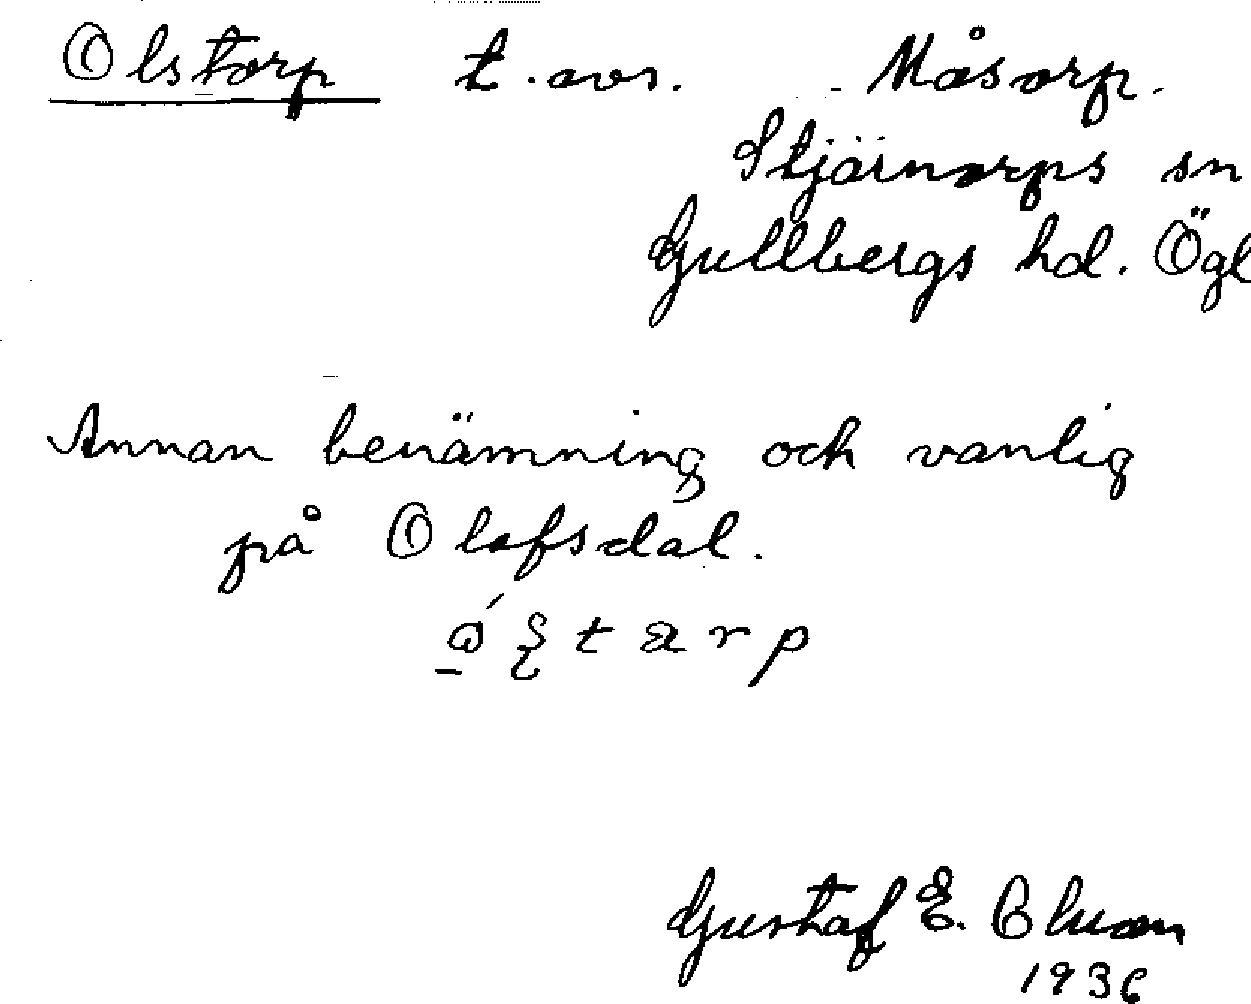 Olstorp t. avs. Måsorp.
Stjärnorps sn
Gullbergs hd. Ögl
Annan benämning och vanlig
på Olofsdal.
Gustaf E.
1936